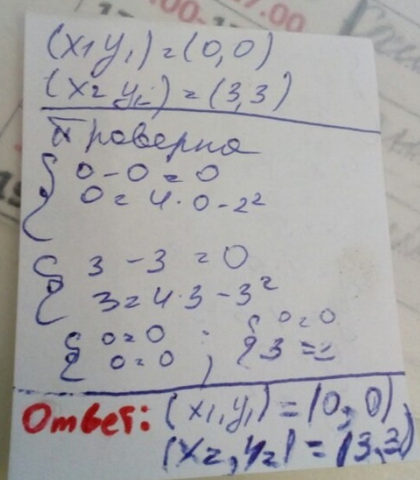 (x₁ y₁) = (0,0)
(x₂ y₂) = (3,3)
Проверка
{ 0 - 0 = 0
0 = 4·0 - 2²
{ 3 - 3 = 0
3 = 4·3 - 3²
{ 0 = 0 ; { 0 = 0
0 = 0 3 =
Ответ: (x₁, y₁) = (0; 0)
(x₂, y₂) = (3,3)